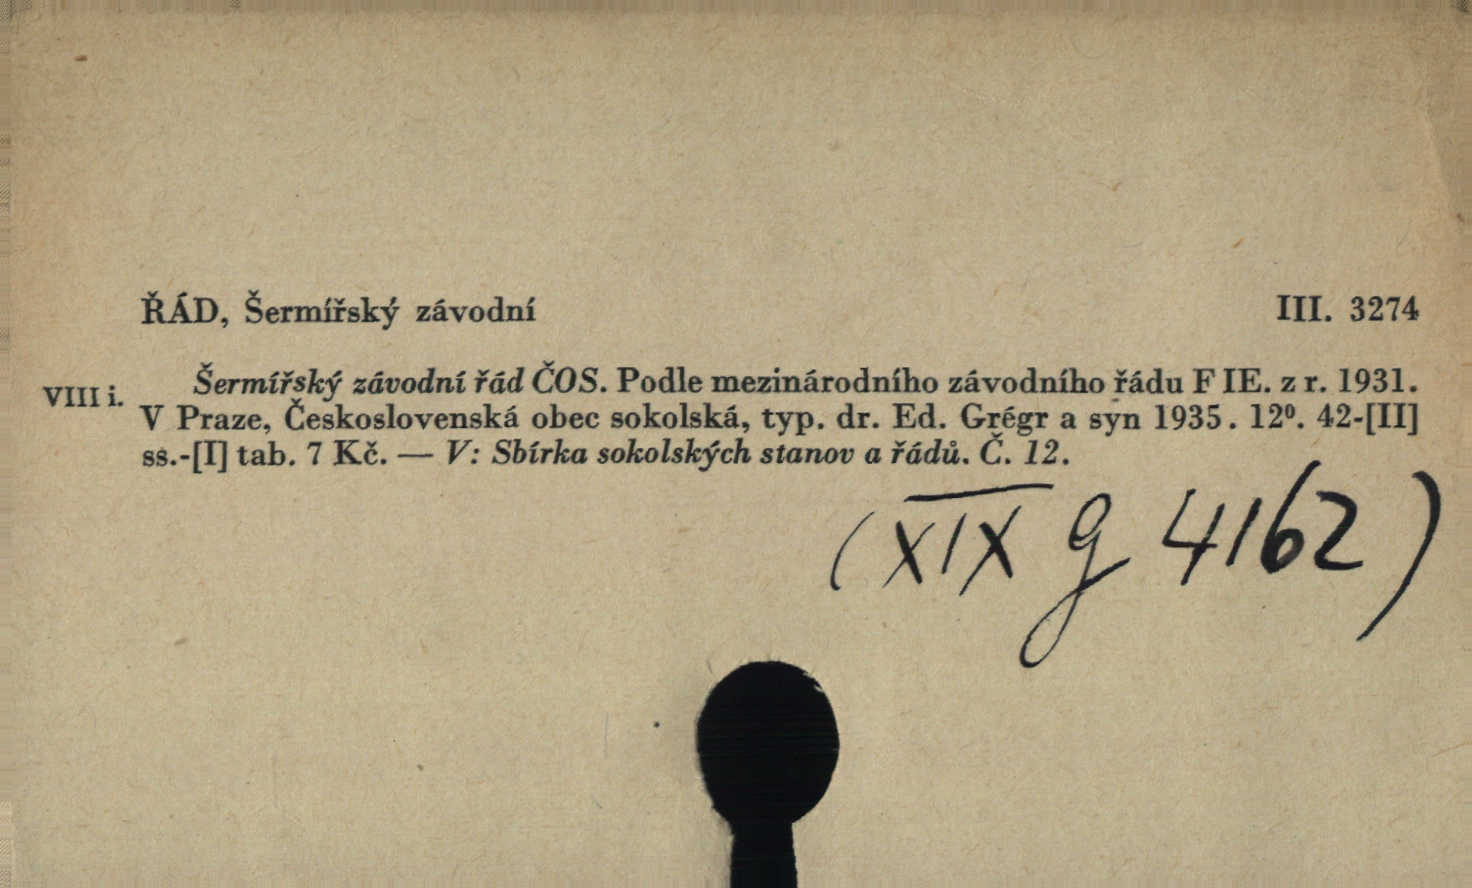 ŘÁD, Šermířský závodní III. 3274
VIII i. Šermířský závodní řád ČOS. Podle mezinárodního závodního řádu F IE. z r. 1931.
V Praze, Československá obec sokolská, typ. dr. Ed. Grégr a syn 1935. 12⁰. 42-[II]
ss.-[I] tab. 7 Kč. — V: Sbírka sokolských stanov a řádů. Č. 12.
(XIX g 4162)